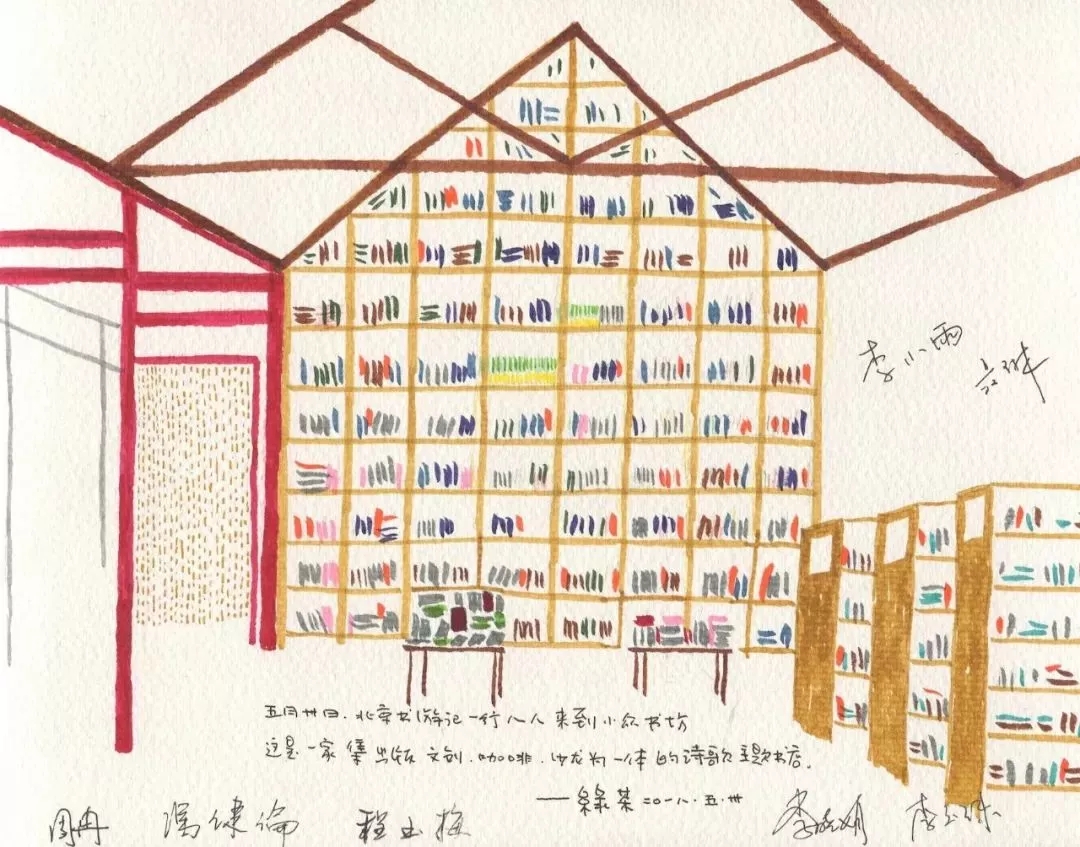 李小雨
五月廿日.北京书游记一行八人来到小众书坊
这是一家集出版.文创.咖啡.沙龙为一体的诗歌主题书店.
——绿茶 二〇一八.五.廿
周冉
冯建伦
程玉梅